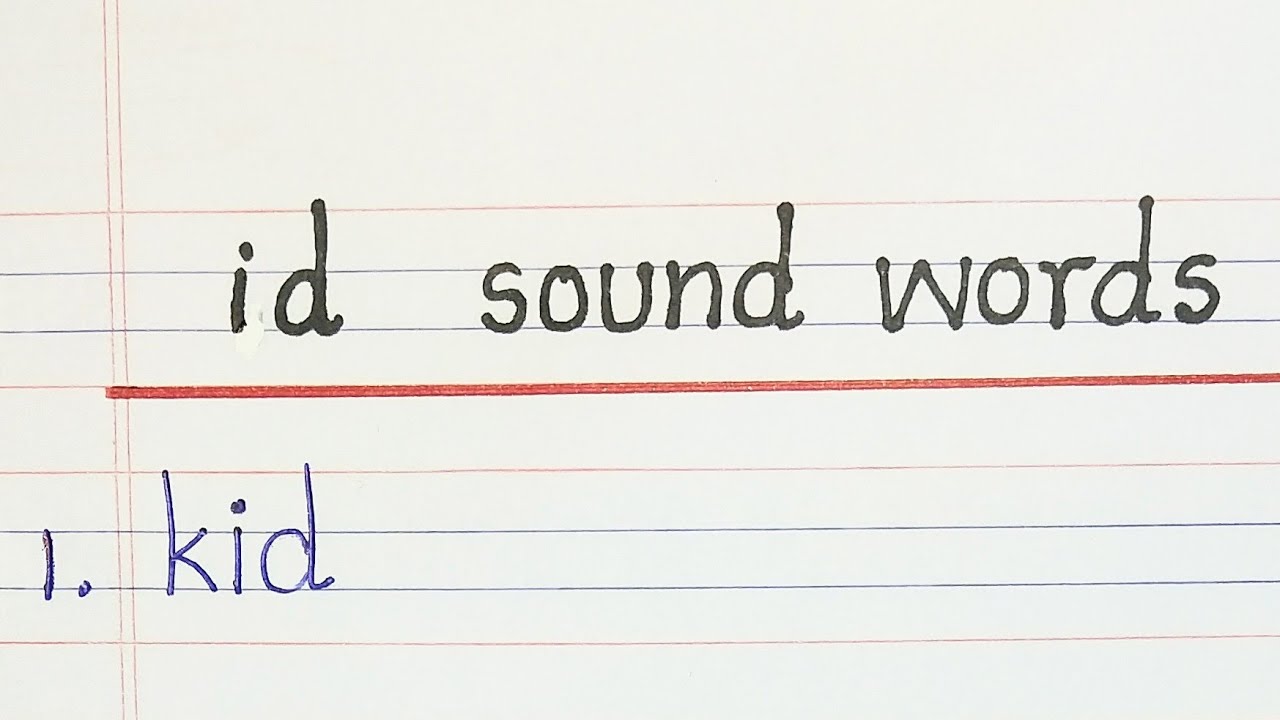 id sound words
1. kid